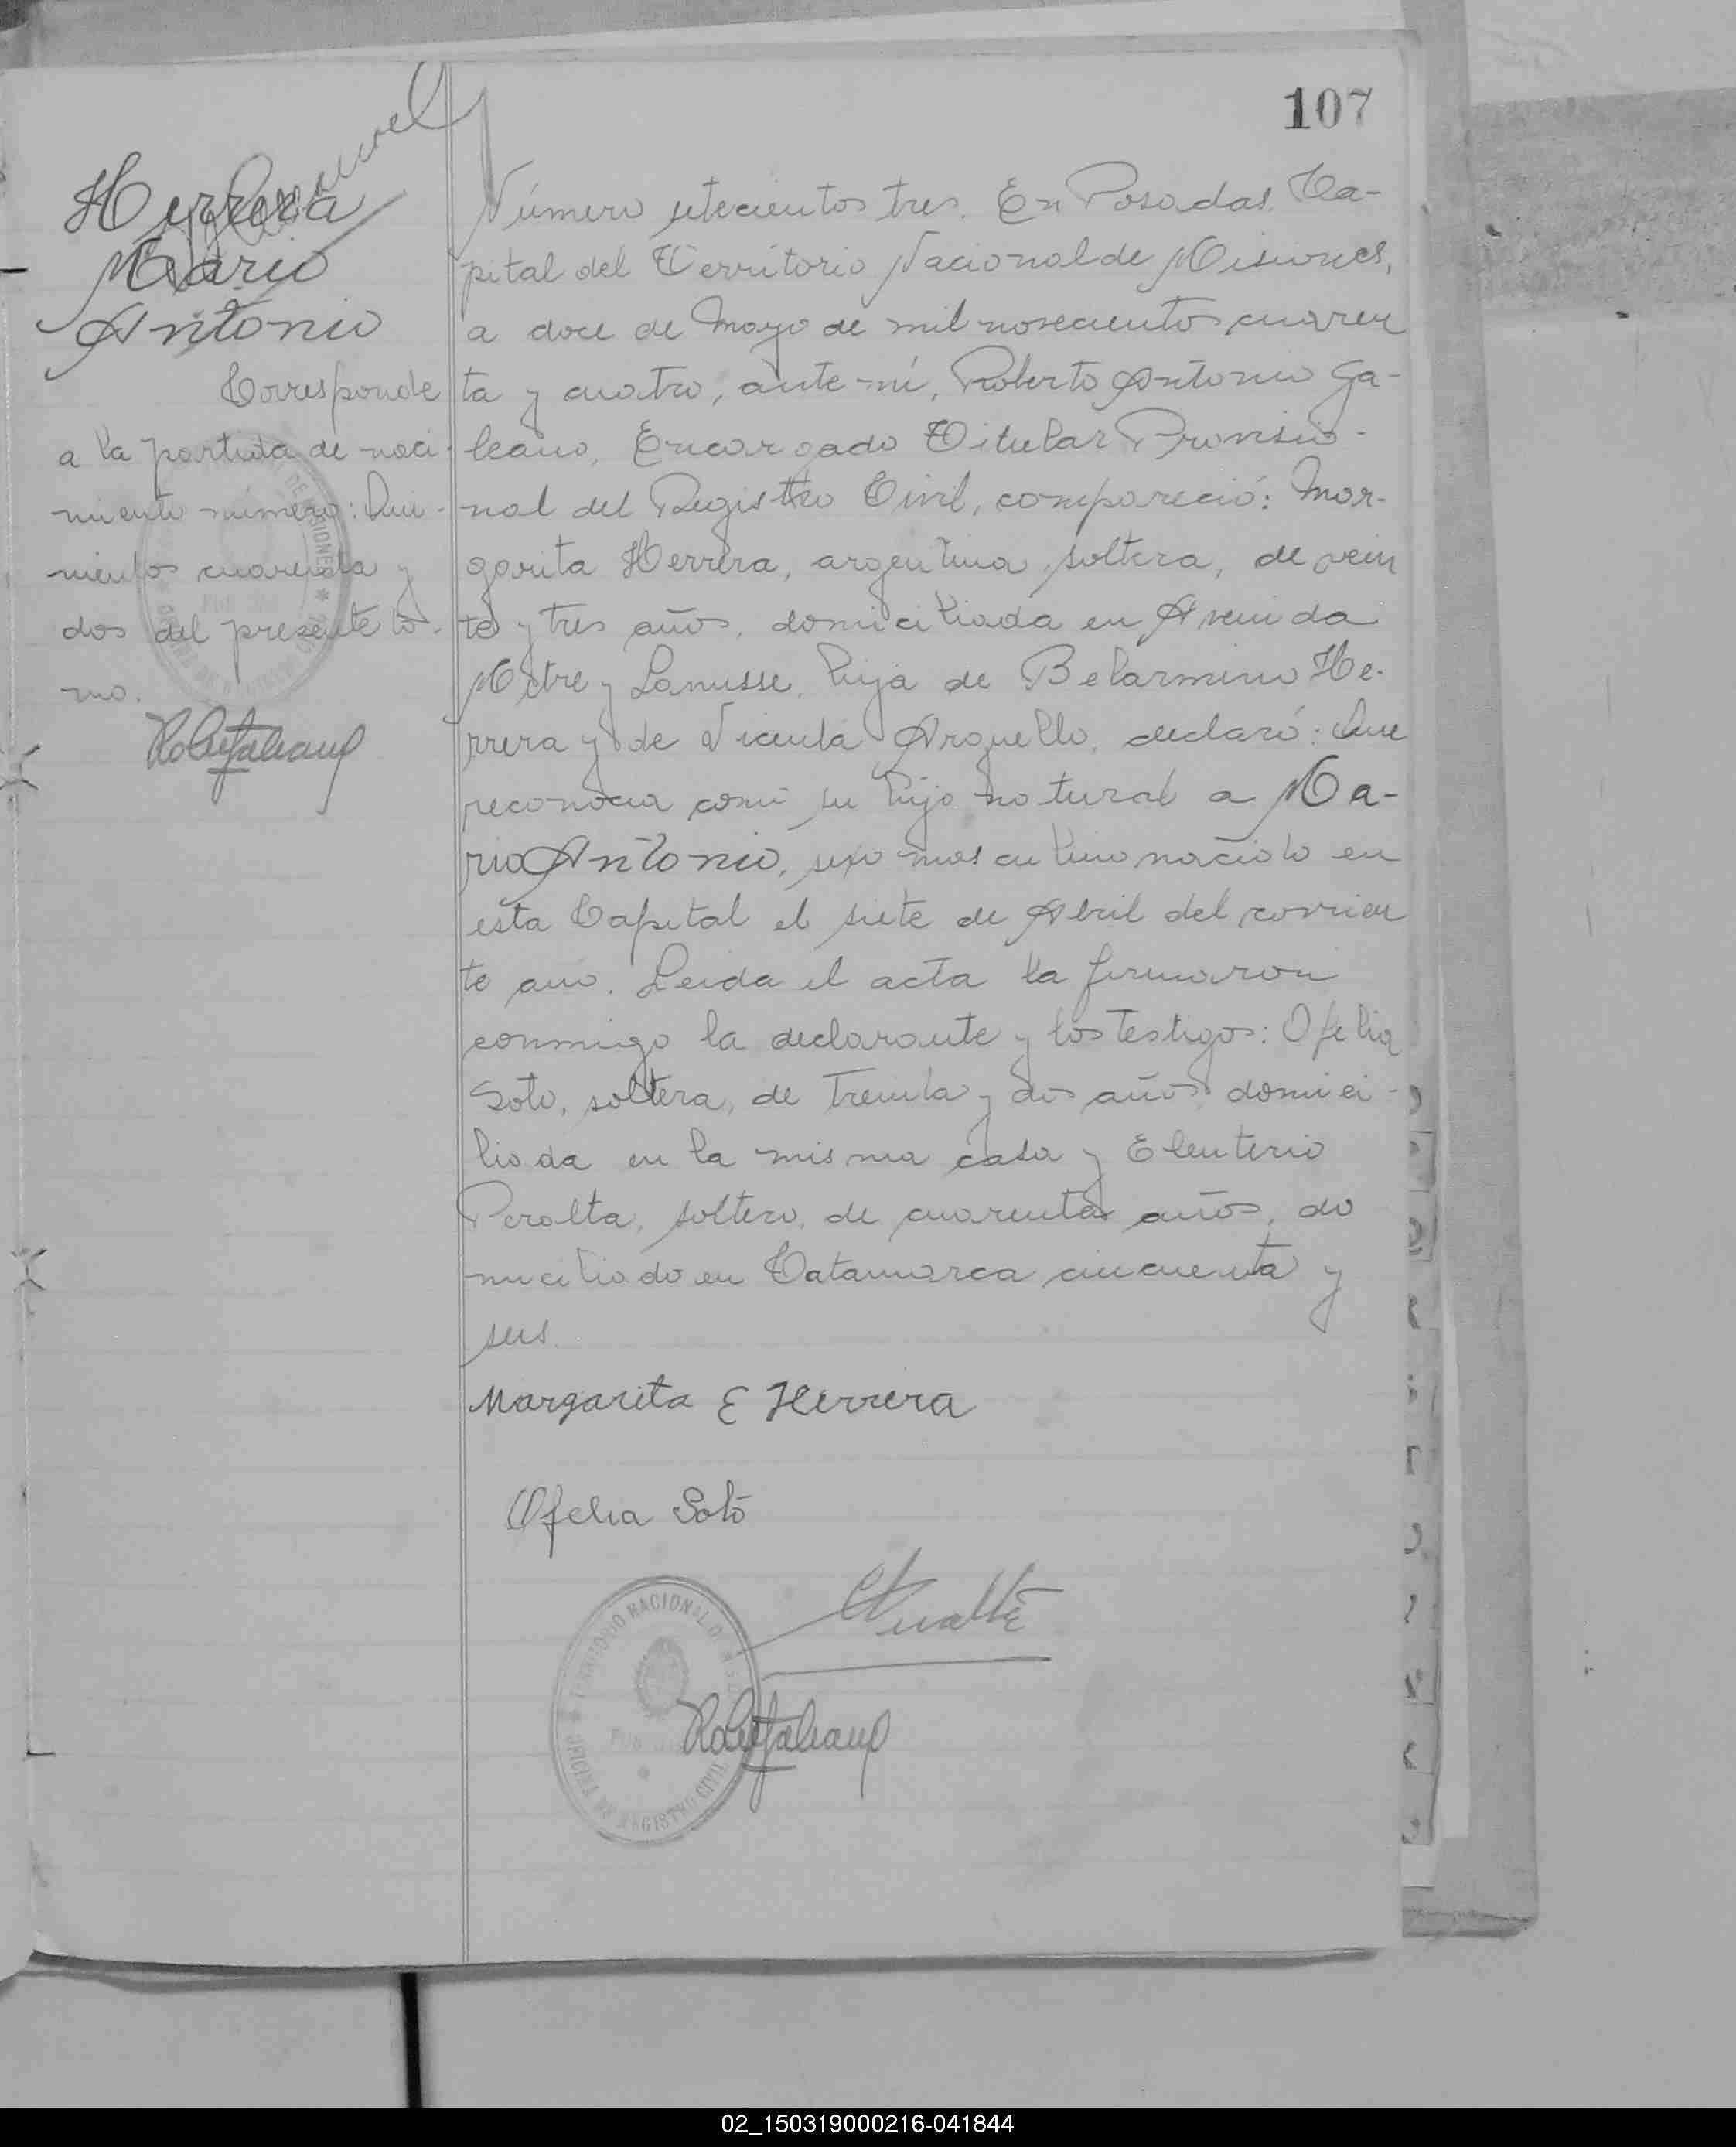 107
Herrera
Mario
Antonio
Corresponde
a la partida de naci-
miento número: Qui-
nientos cuarenta y
dos del presente to-
mo.
Número setecientos tres. En Posadas, Ca-
pital del Territorio Nacional de Misiones,
a doce de Mayo de mil novecientos cuaren
ta y cuatro, ante mí, Roberto Antonio Ga-
leano, Encargado Titular Provisio-
nal del Registro Civil, compareció: Mar-
garita Herrera, argentina, soltera, de vein
te y tres años, domiciliada en Avenida
Mitre y Lanusse, hija de Belarmino He-
rrera y de Vicenta Arguello, declaró: Que
reconocia como su hijo natural a Ma-
rio Antonio, sexo masculino nacido en
esta Capital el siete de Abril del corrien
te año. Leida el acta la firmaron
conmigo la declarante y los testigos: Ofelia
Soto, soltera, de treinta y dos años, domici-
liada en la misma casa y Eleuterio
Peralta, soltero, de cuarenta años, do
miciliado en Catamarca cincuenta y
seis.
Margarita E Herrera
Ofelia Soto
TERRITORIO NACIONAL DE MISIONES
OFICINA DE REGISTRO CIVIL
02_150319000216-041844